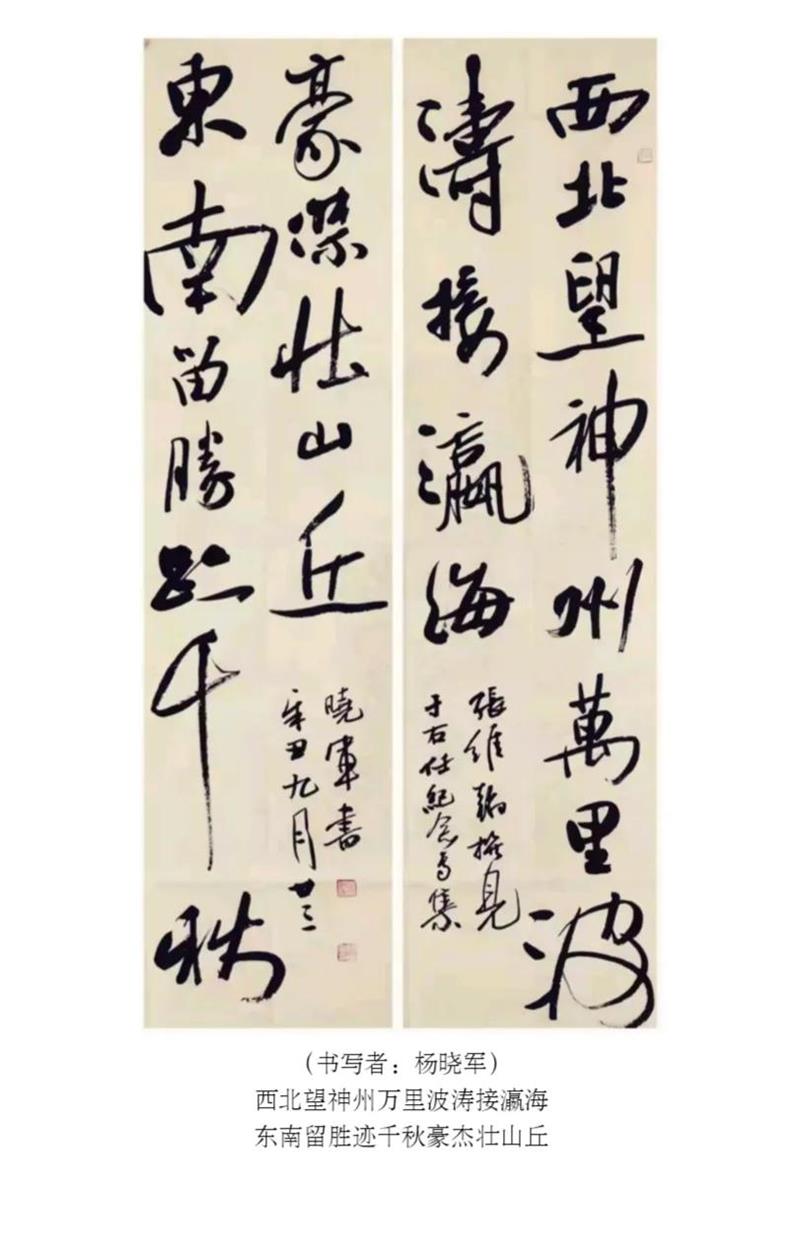 西北望神州萬里波
濤接瀛海
張維翰撰見
于右任紀念專集
東南留勝跡千秋
豪傑壯山丘
辛丑九月廿三
曉軍書
（书写者：杨晓军）
西北望神州万里波涛接瀛海
东南留胜迹千秋豪杰壮山丘